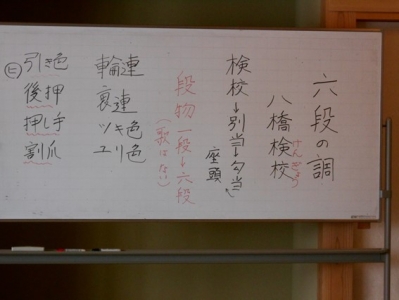 六段の調
八橋検校
けんぎょう
検校→別当→勾当→
座頭
段物 一段→六段
(歌はない)
輪連
裏連
ツキ色
ユリ色
ヒ 引き色
後押
押し手
割爪